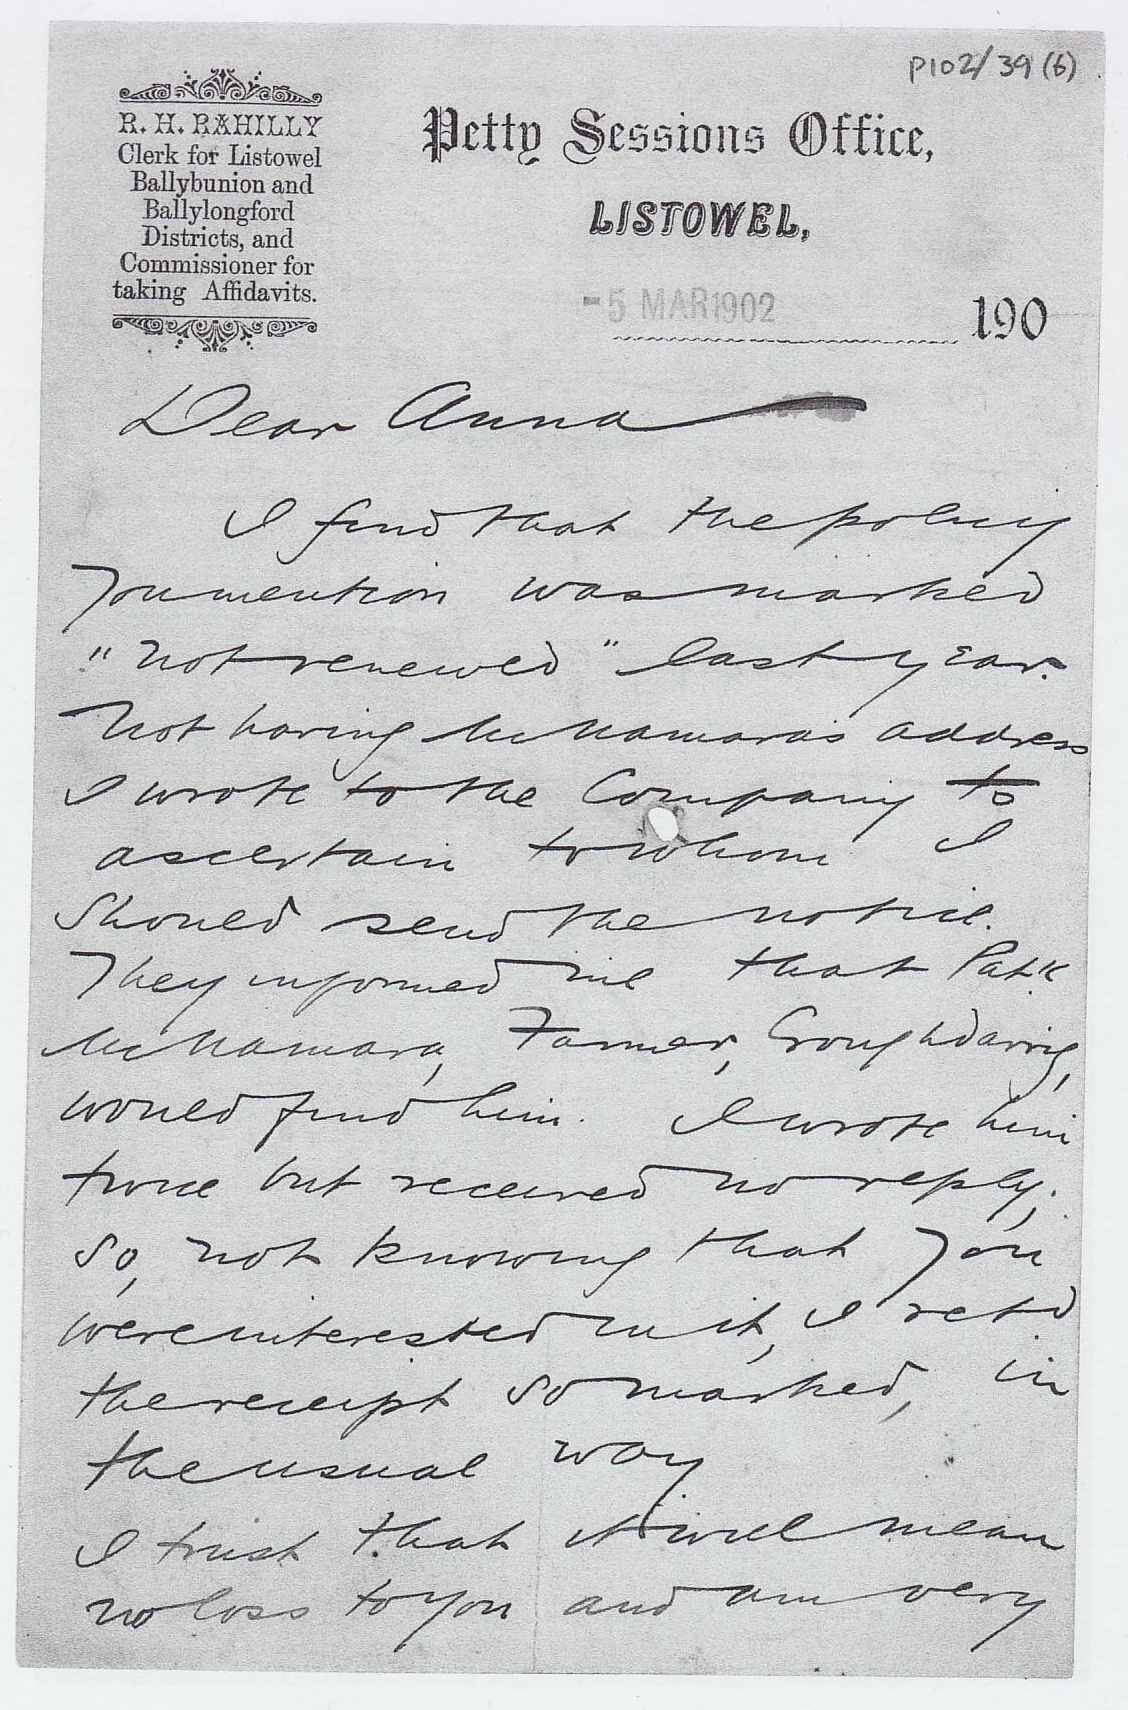 P102/39 (6)
R. H. RAHILLY
Clerk for Listowel
Ballybunion and
Ballylongford
Districts, and
Commissioner for
taking Affidavits.
Petty Sessions Office,
LISTOWEL,
-5 MAR 1902
190
Dear Anna
I find that the policy
you mention was marked
"not renewed" last year.
Not having McNamara's address
I wrote to the Company to
ascertain to whom I
should send the notice.
They informed me that Patk
McNamara, Farmer, Croughdarrig,
would find him. I wrote him
twice but received no reply;
so, not knowing that you
were interested in it, I retd
the receipt so marked, in
the usual way
I trust that it will mean
no loss to you and am very